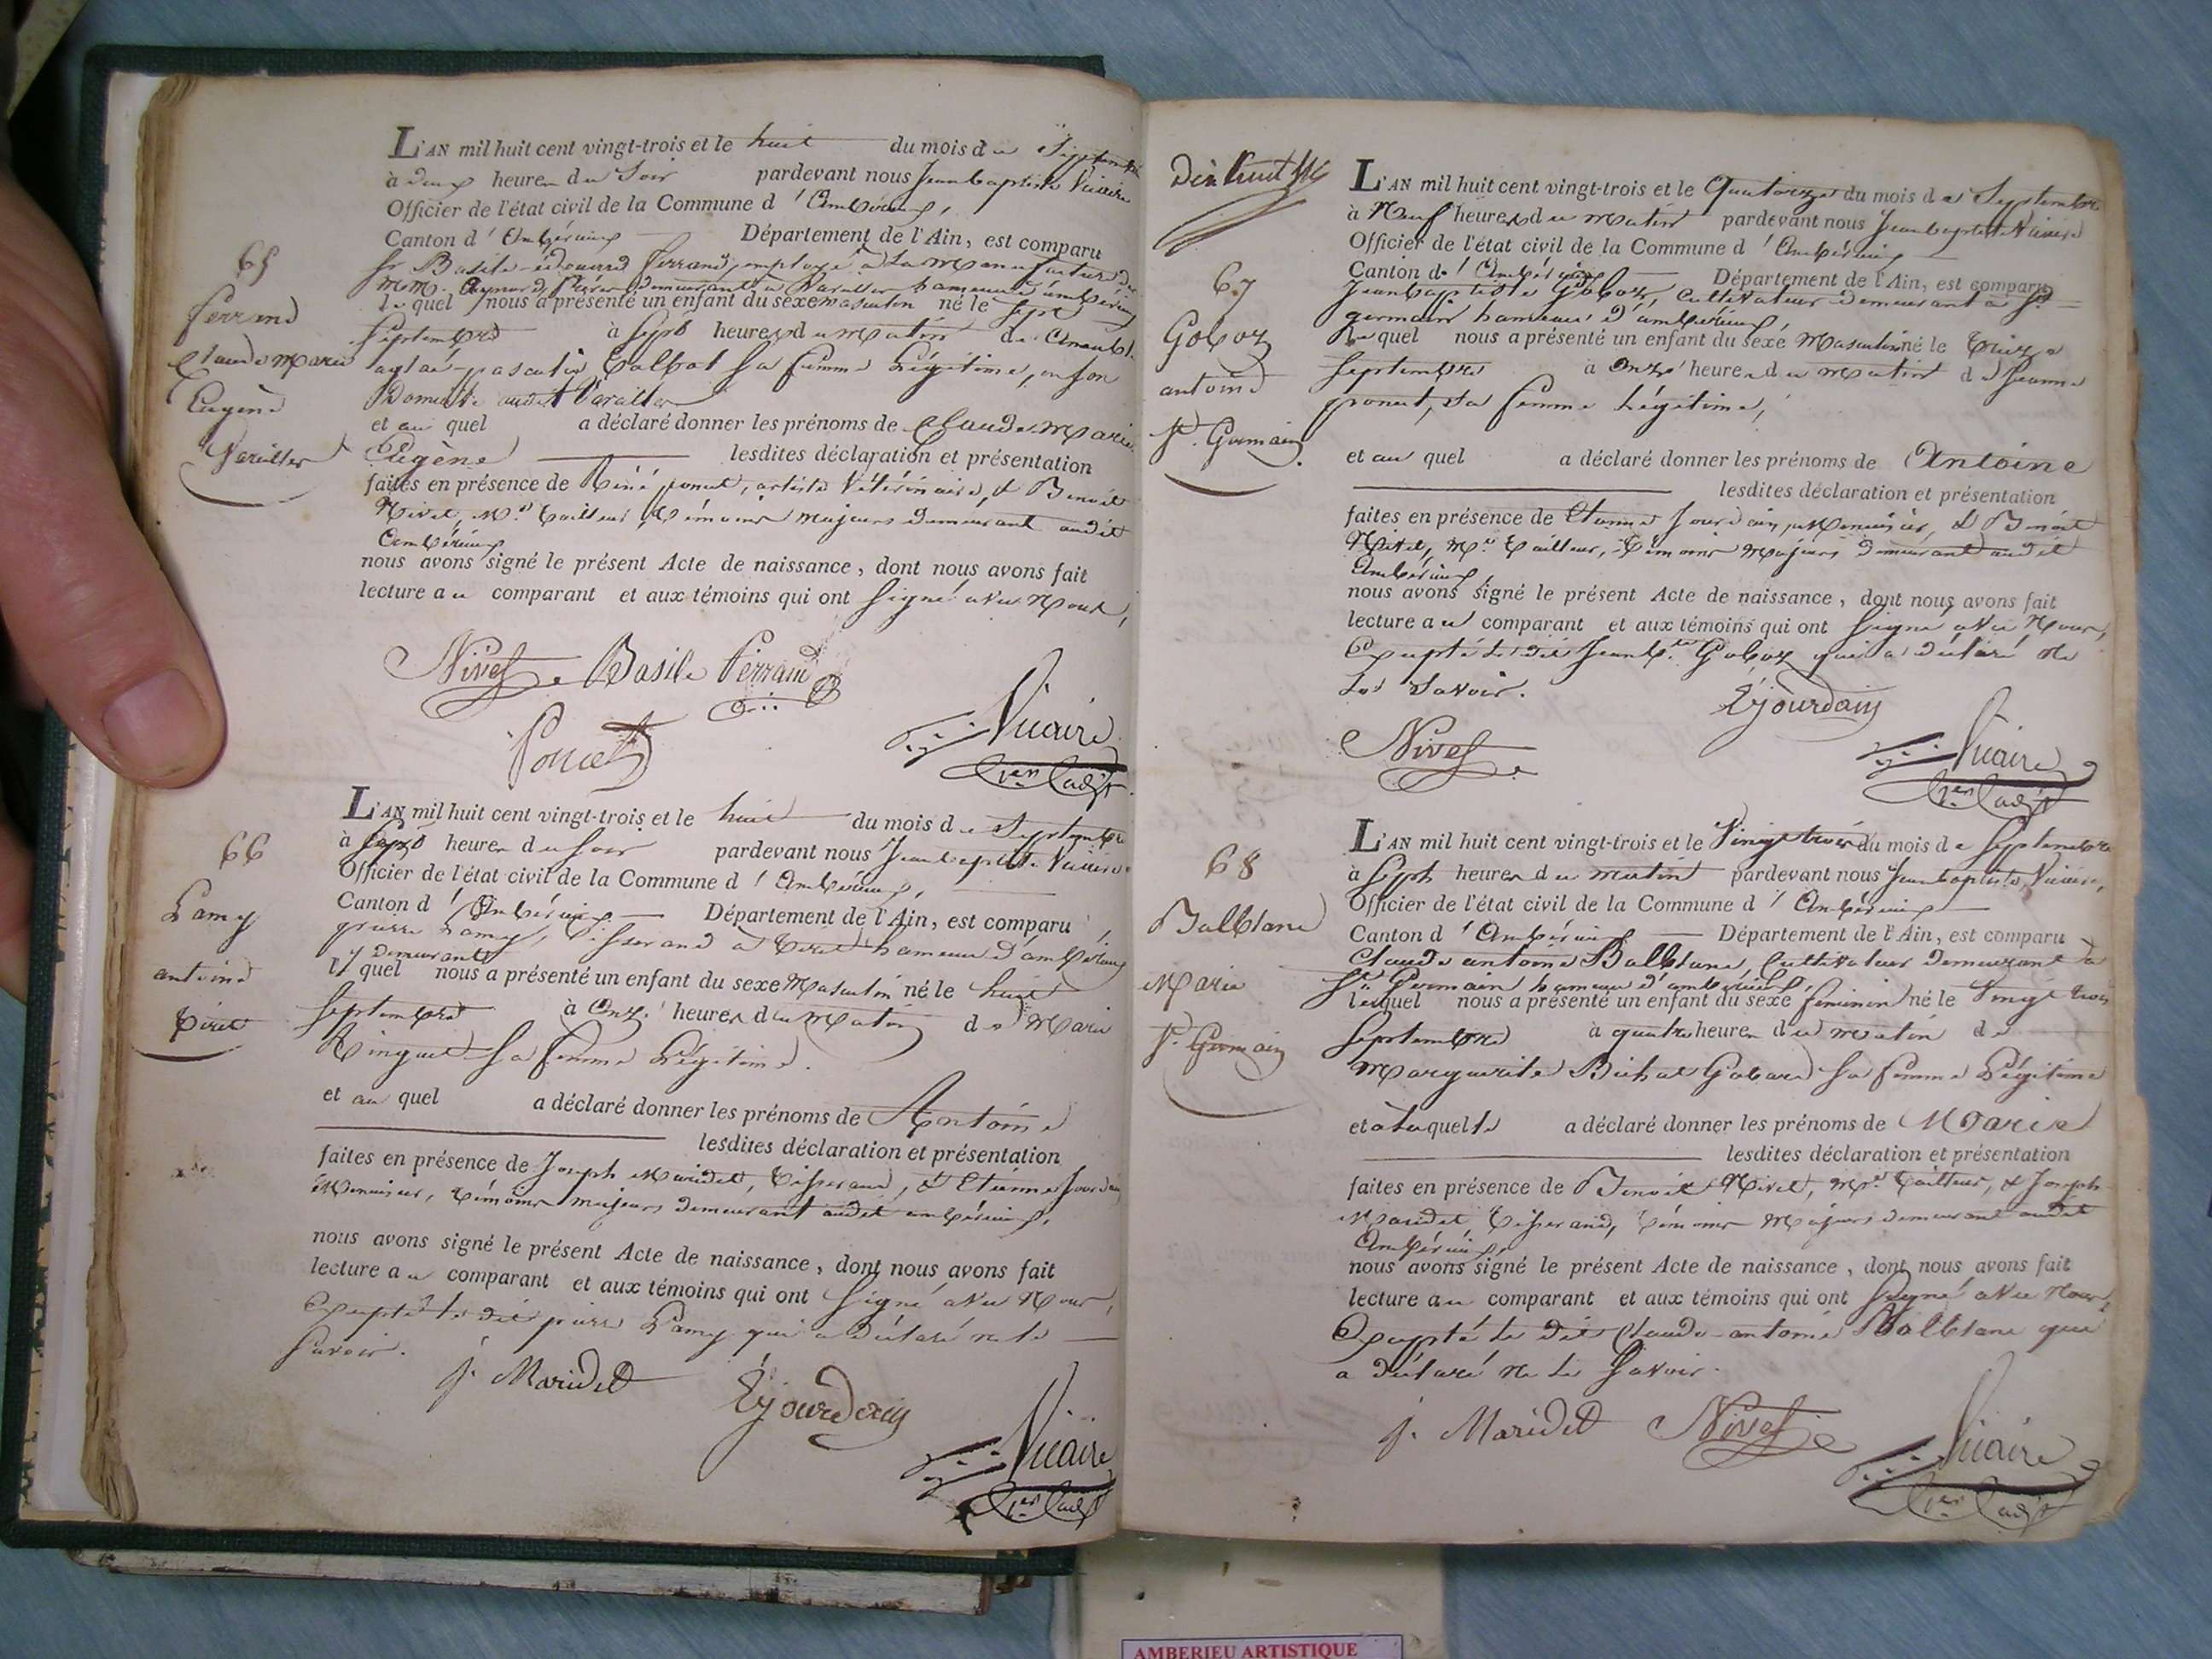 L'AN mil huit cent vingt-trois et le huit du mois de Septembre
à deux heures du Soir pardevant nous Jean baptiste Vicaire
Officier de l'état civil de la Commune d'Ambérieux,
Canton d'Ambérieux Département de l'Ain, est comparu
Sr Basile édouard ferrand, employé à la Manufacture de
MM. Aynard frères demeurant à Vareilles hameau d'ambérieux
le quel nous a présenté un enfant du sexe masculin né le Sept
Septembre à Sept heures du matin de
Sa femme Légitime, en Son
Domicile audit Vareilles
et au quel a déclaré donner les prénoms de Claude Marie
Eugène lesdites déclaration et présentation
faites en présence de Réné poncet, artiste Vétérinaire, & Benoit
Nivet, Md tailleur, témoins majeurs demeurant audit
Ambérieux
nous avons signé le présent Acte de naissance, dont nous avons fait
lecture au comparant et aux témoins qui ont Signé avec Nous,
65
ferrand
Claude Marie
Eugène
Vareilles
Nivet Basile Ferrand
Poncet Vicaire
1er adjt
L'AN mil huit cent vingt-trois et le huit du mois de Septembre
à Sept heures du Soir pardevant nous Jean baptiste Vicaire
Officier de l'état civil de la Commune d'Ambérieux,
Canton d'Ambérieux Département de l'Ain, est comparu
pierre Lamy, tisserand à tiret hameau d'ambérieux
y demeurant
le quel nous a présenté un enfant du sexe Masculin né le huit
Septembre à Onze heures du Matin de Marie
Sa femme Légitime.
et au quel a déclaré donner les prénoms de Antoine
lesdites déclaration et présentation
faites en présence de Joseph Maridet, tisserand, & Etienne Jourdain
Menuisier, témoins majeurs demeurant audit ambérieux,
nous avons signé le présent Acte de naissance, dont nous avons fait
lecture au comparant et aux témoins qui ont Signé avec Nous,
Excepté le dit pierre Lamy qui a déclaré ne le
Savoir.
66
Lamy
antoine
tiret
j. Maridet Ejourdain
Vicaire
1er adjt
L'AN mil huit cent vingt-trois et le Quatorze du mois de Septembre
à Neuf heures du matin pardevant nous Jean baptiste Vicaire
Officier de l'état civil de la Commune d'Ambérieux
Canton d'Ambérieux Département de l'Ain, est comparu
Jean baptiste Goboz, Cultivateur demeurant à St
germain hameau d'ambérieux,
le quel nous a présenté un enfant du sexe Masculin né le treize
Septembre à Onze heures du matin de Jeanne
poncet, Sa femme Légitime,
et au quel a déclaré donner les prénoms de Antoine
lesdites déclaration et présentation
faites en présence de Etienne Jourdain, Menuisier, & Benoit
Nivet, Md tailleur, témoins Majeurs demeurant audit
Ambérieux,
nous avons signé le présent Acte de naissance, dont nous avons fait
lecture au comparant et aux témoins qui ont Signé avec Nous,
Excepté le dit Jean Bte Goboz qui a déclaré ne
le Savoir.
67
Goboz
antoine
St Germain
Ejourdain
Nivet Vicaire
1er adjt
L'AN mil huit cent vingt-trois et le Vingt trois du mois de Septembre
à Sept heures du matin pardevant nous Jean baptiste Vicaire,
Officier de l'état civil de la Commune d'Ambérieux
Canton d'Ambérieux Département de l'Ain, est comparu
Claude antoine Balblanc, Cultivateur demeurant à
St Germain hameau d'ambérieux,
lequel nous a présenté un enfant du sexe féminin né le Vingt trois
Septembre à quatre heures du matin de
Marguerite Bichat Gobard Sa femme Légitime
et à laquelle a déclaré donner les prénoms de Marie
lesdites déclaration et présentation
faites en présence de Benoit Nivet, Md tailleur, & Joseph
Maridet, tisserand, témoins Majeurs demeurant audit
Ambérieux,
nous avons signé le présent Acte de naissance, dont nous avons fait
lecture au comparant et aux témoins qui ont Signé avec Nous
Excepté le dit Claude antoine Balblanc qui
a déclaré ne le Savoir.
68
Balblanc
Marie
St Germain
j. Maridet Nivet
Vicaire
1er adjt
AMBERIEU ARTISTIQUE